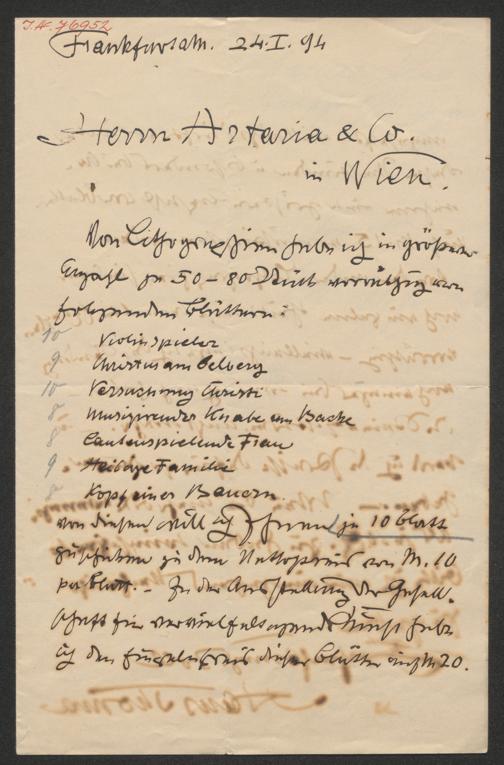 J.N. 76952
Frankfurt aM. 24.I.94
Herrn Artaria & Co.
in Wien.
Von Lithographien habe ich in größerer
Anzahl zu 50–80 Stück vorräthig von
folgenden Blättern:
10 Violinspieler
9 Christus am Oelberg
10 Versuchung Christi
8 Musizirender Knabe am Bache
8 Lautenspielende Frau
9 Heilige Familie
8 Kopf eines Bauern
von diesen will ich Ihnen je 10 Blatt
zuschicken zu dem Nettopreis von M. 10
per Blatt. – In der Ausstellung der Gesell-
schaft für vervielfältigende Kunst habe
ich den Einzelpreis dieser Blätter auf M 20.